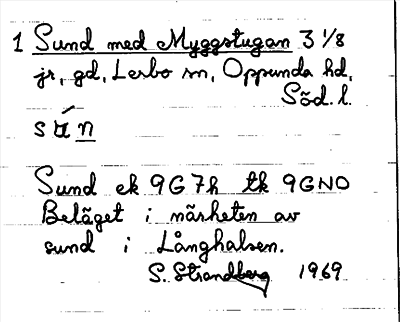 1 Sund med Myggstugan 3 1/8
jr, gd, Lerbo sn, Oppunda hd,
Söd. l.
s ú n
Sund ek 9G7h tk 9GNO
Beläget i närheten av
sund i Långhalsen.
S. Strandberg 1969